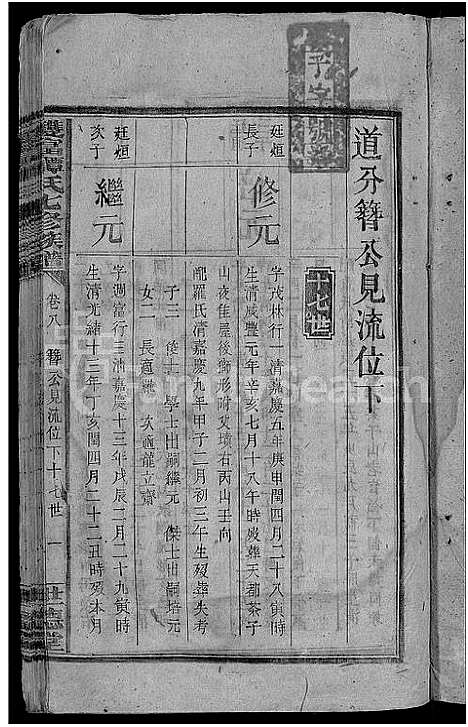 平字號
道牙簪公見流位下
十七世
廷烜
長子
修元
字茂林行一清嘉慶五年庚申閏四月二十八寅時
生清咸豐元年辛亥七月十八午時歿葬天都茶子
山夜佳屋後獅形附父墳右丙山壬向
配羅氏清嘉慶九年甲子二月初三午生歿葬失考
子三 俊士 學士出嗣繼元 傑士出嗣培元
女二 長適羅 次適龍立齋
廷烜
次子
繼元
字週富行三清嘉慶十三年戊辰二月二十九寅時
生清光緒十三年丁亥閏四月二十二丑時歿本月
氏七修族譜
卷八 簪公見流位下十七世 一
FamilySearch